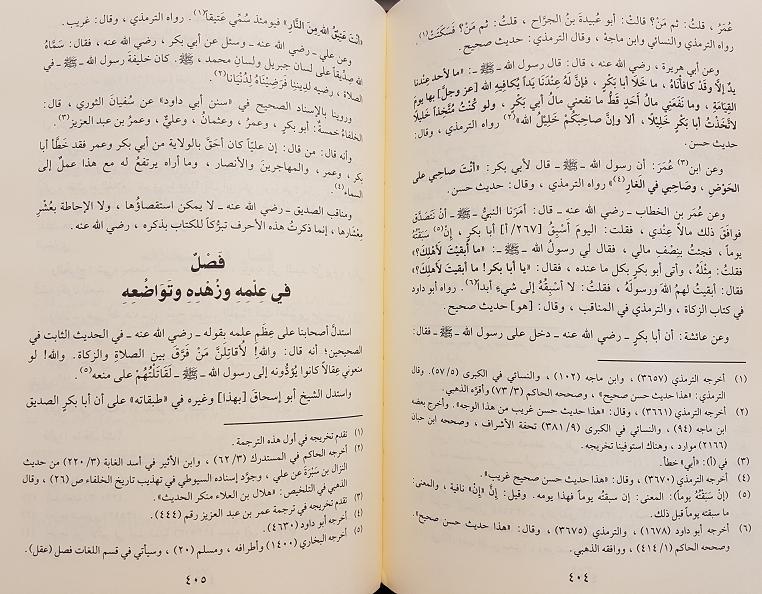 عُمَرُ ، قلتُ: ثم مَنْ؟ قالت: أبو عُبيدةَ بنُ الجرَّاح ، قلتُ: ثم مَنْ؟ فَسَكَتَتْ(١).
رواه الترمذي والنسائي وابن ماجة ، وقال الترمذي: حديث صحيح.
وعن أبي هريرة ، رضي الله عنه ، قال: قال رسول الله ـ ﷺ ـ: «ما لأحدٍ عِنْدنا
يدٌ إلاَّ وقَدْ كافأْنَاهُ ، ما خَلا أبا بَكَرٍ ، فإنَّ لَهُ عِنْدَنَا يَداً يُكافِيهِ اللهُ [عز وجلَّ] بها يومَ
القِيَامَةِ ، وما نَفَعني مالُ أحدٍ قَطُّ ما نفعني مالُ أبي بَكْرٍ ، ولو كُنْتُ مُتَّخِذاً خليلاً
لاتَّخَذْتُ أبا بَكْرٍ خَلِيْلاً ، ألا وإنَّ صاحِبَكُمْ خَليْلُ اللهِ»(٢) رواه الترمذي ، وقال:
حديث حسن.
وعن ابن(٣) عُمَرَ: أن رسول الله ـ ﷺ ـ قال لأبي بكر: «أَنْتَ صاحِبي على
الحَوْضِ ، وصَاحِبي في الغَارِ(٤)» رواه الترمذي ، وقال: حديث حسن.
وعن عُمَر بن الخطاب ـ رضي الله عنه ـ قال: أمَرَنا النبيُّ ـ ﷺ ـ أنْ نَتَصَدَّقَ
فوافَقَ ذلك مالاً عِندي ، فقلت: اليومَ أَسْبِقُ [٢٦٧/أ] أبا بكرٍ ، إنْ(٥) سَبَقْتُه
يوماً ، فجئتُ بنِصْفِ مالي ، فقال لي رسولُ الله ـ ﷺ ـ: «ما أَبقَيْتَ لأهْلِكَ؟»
فقلتُ: مِثْلَهُ ، وأتى أبو بكرٍ بكل ما عنده ، فقال: «يا أبا بكر! ما أبقيتَ لأهلِكَ؟»
فقال: أبقيتُ لهمُ اللهَ ورسولَهُ ، فقلتُ: لا أَسْبِقُهُ إلى شيءٍ أبداً(٦). رواه أبو داود
في كتاب الزكاة ، والترمذي في المناقب ، وقال: [هو] حديث صحيح.
وعن عائشة: أن أبا بكرٍ ـ رضي الله عنه ـ دخل على رسول الله ـ ﷺ ـ فقال:
(١) أخرجه الترمذي (٣٦٥٧) ، وابن ماجه (١٠٢) ، والنسائي في الكبرى (٥٧/٥). وقال
الترمذي: «هذا حديث حسن صحيح» ، وصححه الحاكم (٧٣/٣) وأقرَّه الذهبي.
(٢) أخرجه الترمذي (٣٦٦١) ، وقال: «هذا حديث حسن غريب من هذا الوجه». وأخرج بعضه
ابن ماجه (٩٤) ، والنسائي في الكبرى (٣٨١/٩) تحفة الأشراف ، وصححه ابن حبان
(٢١٦٦) موارد ، وهناك استوفينا تخريجه.
(٣) في (أ): «أبي» خطأ.
(٤) أخرجه الترمذي (٣٦٧٠) ، وقال: «هذا حديث حسن صحيح غريب».
(٥) (إنْ سَبَقْتُهُ يوماً): المعنى: إن سبقتُه يوماً فهذا يومه. وقيل: إنَّ «إنْ» نافية ، والمعنى:
ما سبقته يوماً قبل ذلك.
(٦) أخرجه أبو داود (١٦٧٨) ، والترمذي (٣٦٧٥) ، وقال: «هذا حديث حسن صحيح».
وصححه الحاكم (٤١٤/١) ، ووافقه الذهبي.
٤٠٤
«أَنْتَ عَتِيْقُ اللهِ مِنَ النَّارِ» فيومئذ سُمِّيَ عَتيقاً(١). رواه الترمذي ، وقال: غريب.
وعن علي ـ رضي الله عنه ـ وسئل عن أبي بكر ، رضي الله عنه ، فقال: سَمَّاهُ
الله صِدِّيقاً على لسانِ جبريل ولسانِ محمد ، ﷺ. كان خليفةَ رسول الله ـ ﷺ ـ في
الصلاة ، رضيه لديننا فرَضِيْنَاهُ لدُنْيَانا(٢).
وروينا بالإسناد الصحيح في «سنن أبي داود» عن سفيانَ الثوري ، قال:
الخلفاءُ خمسةٌ: أبو بكرٍ ، وعمرُ ، وعثمانُ ، وعليٌّ ، وعمرُ بن عبد العزيز(٣).
وأنه قال: من قال: إن عليّاً كان أحَقَّ بالولاية من أبي بكر وعمر فقد خَطَّأ أبا
بكر ، وعمر ، والمهاجرينَ والأنصار ، وما أراه يرتفعُ له مع هذا عملٌ إلى
السماء(٤).
ومناقب الصديق ـ رضي الله عنه ـ لا يمكن استقصاؤُها ، ولا الإحاطة بعُشْرِ
مِعْشارها ، إنما ذكرتُ هذه الأحرف تبرُّكاً للكتاب بذكره ، رضي الله عنه.
فَصْلٌ
في عِلْمه وزُهْدِهِ وتَوَاضُعِهِ
استدلَّ أصحابنا على عِظَمِ علمه بقوله ـ رضي الله عنه ـ في الحديث الثابت في
الصحيحين؛ أنه قال: والله! لأُقاتِلَنَّ مَنْ فَرَّقَ بين الصلاةِ والزكاة. والله! لو
منعوني عِقالاً كانوا يُؤَدُّونه إلى رسول الله ـ ﷺ ـ لَقَاتَلْتُهُمْ على منعه(٥).
واستدل الشيخ أبو إسحاقَ [بهذا] وغيره في «طبقاته» على أن أبا بكرٍ الصديق
(١) تقدم تخريجه في أول هذه الترجمة.
(٢) أخرجه الحاكم في المستدرك (٦٢/٣) ، وابن الأثير في أسد الغابة (٢٢٠/٣) من حديث
النزال بن سَبْرَةَ عن علي ، وجوَّد إسناده السيوطي في تهذيب تاريخ الخلفاء ص (٢٦) ، وقال
الذهبي في التلخيص: «هلال بن العلاء منكر الحديث».
(٣) تقدم تخريجه في ترجمة عمر بن عبد العزيز رقم (٤٤٤).
(٤) أخرجه أبو داود (٤٦٣٠).
(٥) أخرجه البخاري (١٤٠٠) وأطرافه ، ومسلم (٢٠) ، وسيأتي في قسم اللغات فصل (عقل).
٤٠٥